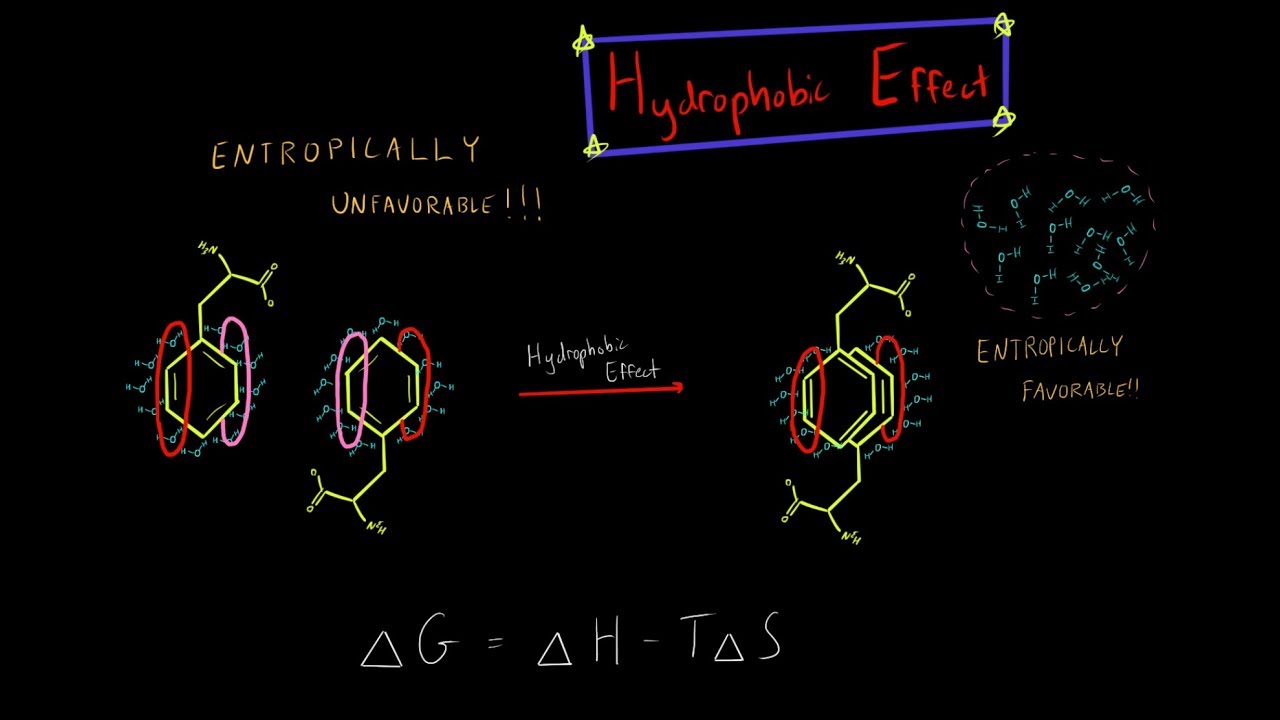 Hydrophobic Effect
ENTROPICALLY
UNFAVORABLE!!!
H₂N
O
O
Hydrophobic
Effect
O
O
NH₂
H₂N
O
O
O
O
NH₂
ENTROPICALLY
FAVORABLE!!
△G = △H - T△S